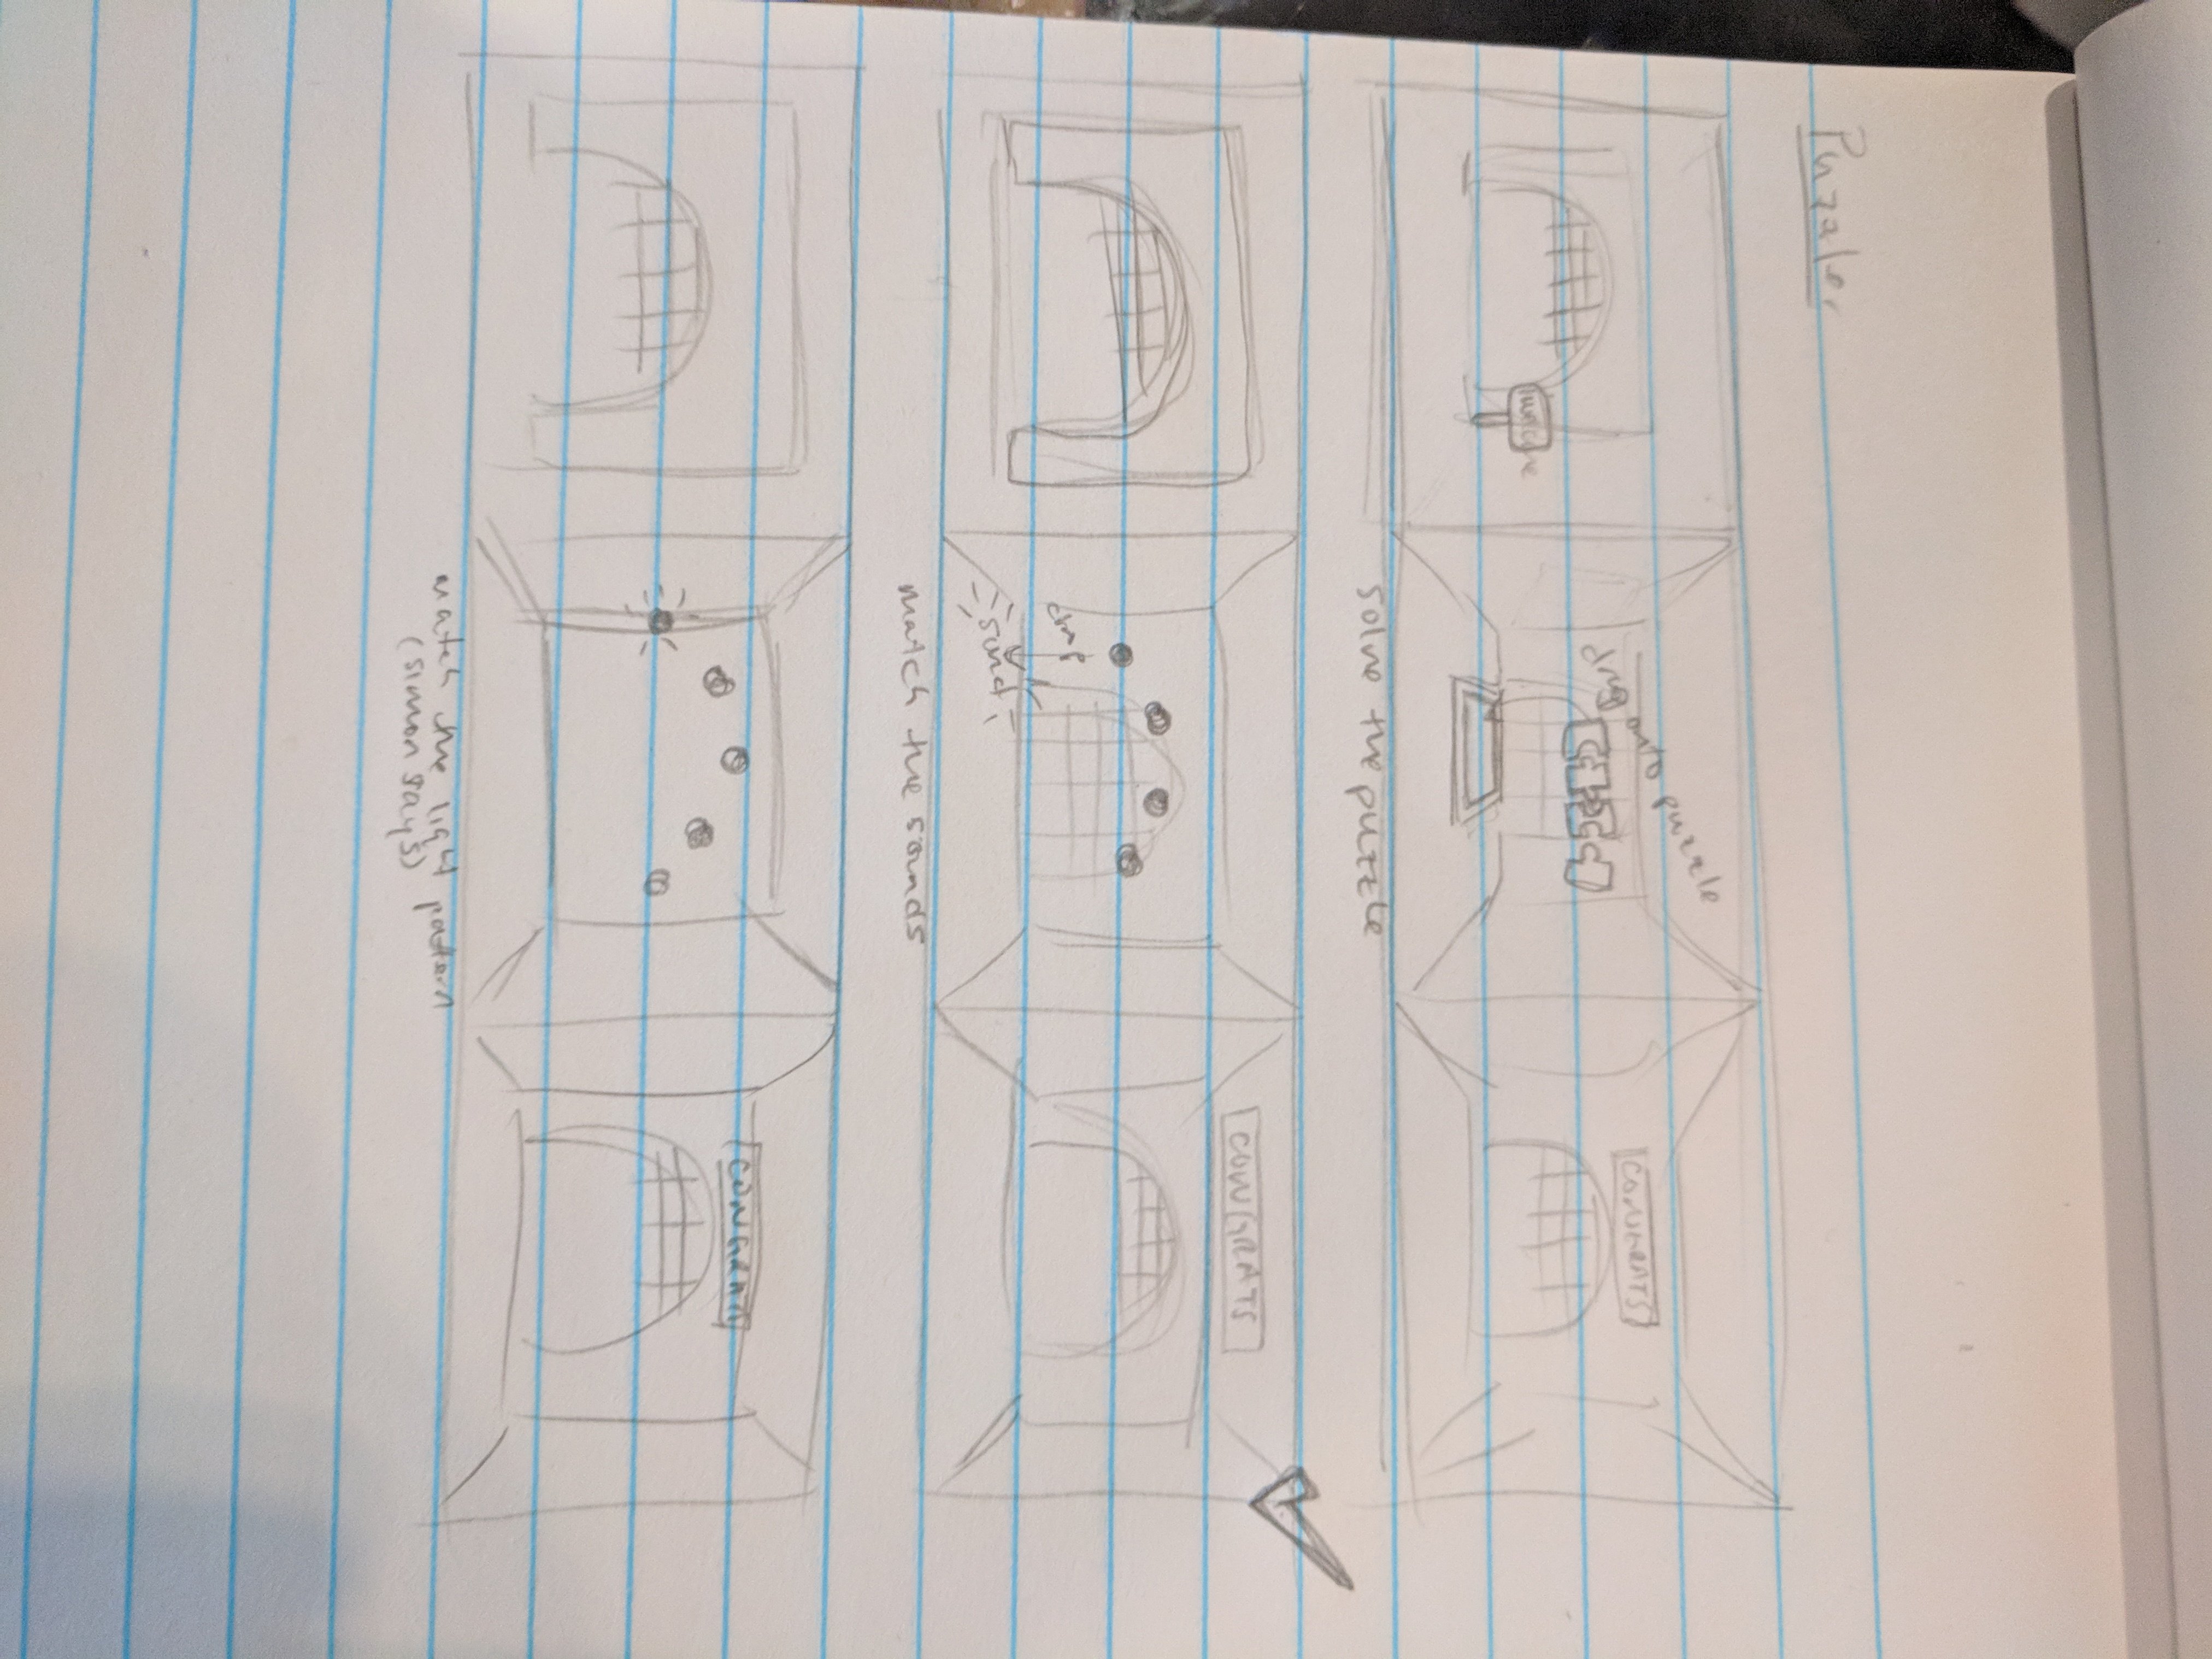 Puzzler
welcome
drag onto puzzle
CONGRATS
solve the puzzle
CONGRATS
sound
match the sounds
CONGRATS
match the light pattern
(simon says)